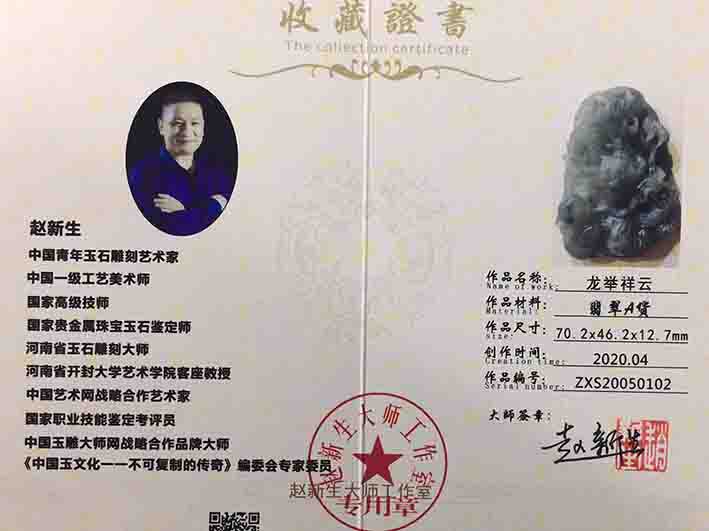 收藏證書
The collection certificate
赵新生
中国青年玉石雕刻艺术家
中国一级工艺美术师
国家高级技师
国家贵金属珠宝玉石鉴定师
河南省玉石雕刻大师
河南省开封大学艺术学院客座教授
中国艺术网战略合作艺术家
国家职业技能鉴定考评员
中国玉雕大师网战略合作品牌大师
《中国玉文化一一不可复制的传奇》编委会专家委员
作品名称: 龙举祥云
Name of work:
作品材料: 翡翠A货
Material:
作品尺寸: 70.2x46.2x12.7mm
size:
创作时间: 2020.04
Creation time:
作品编号: ZXS20050102
Serial number:
大师签章:
赵新生
赵新生大师工作室
赵新生大师工作室
专用章